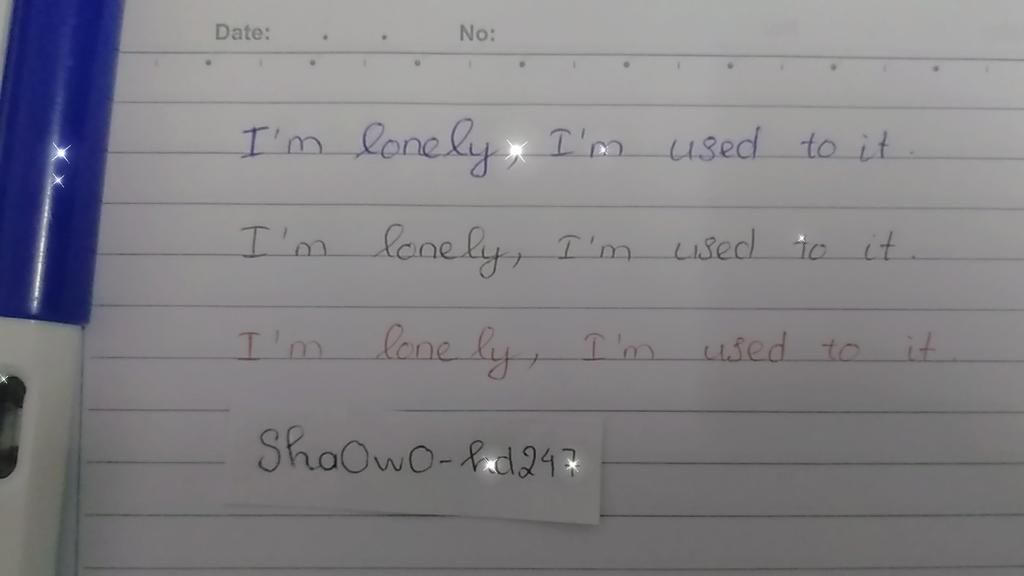 Date: . . No:
I'm lonely, I'm used to it.
I'm lonely, I'm used to it.
I'm lonely, I'm used to it.
ShaOwO-hd247